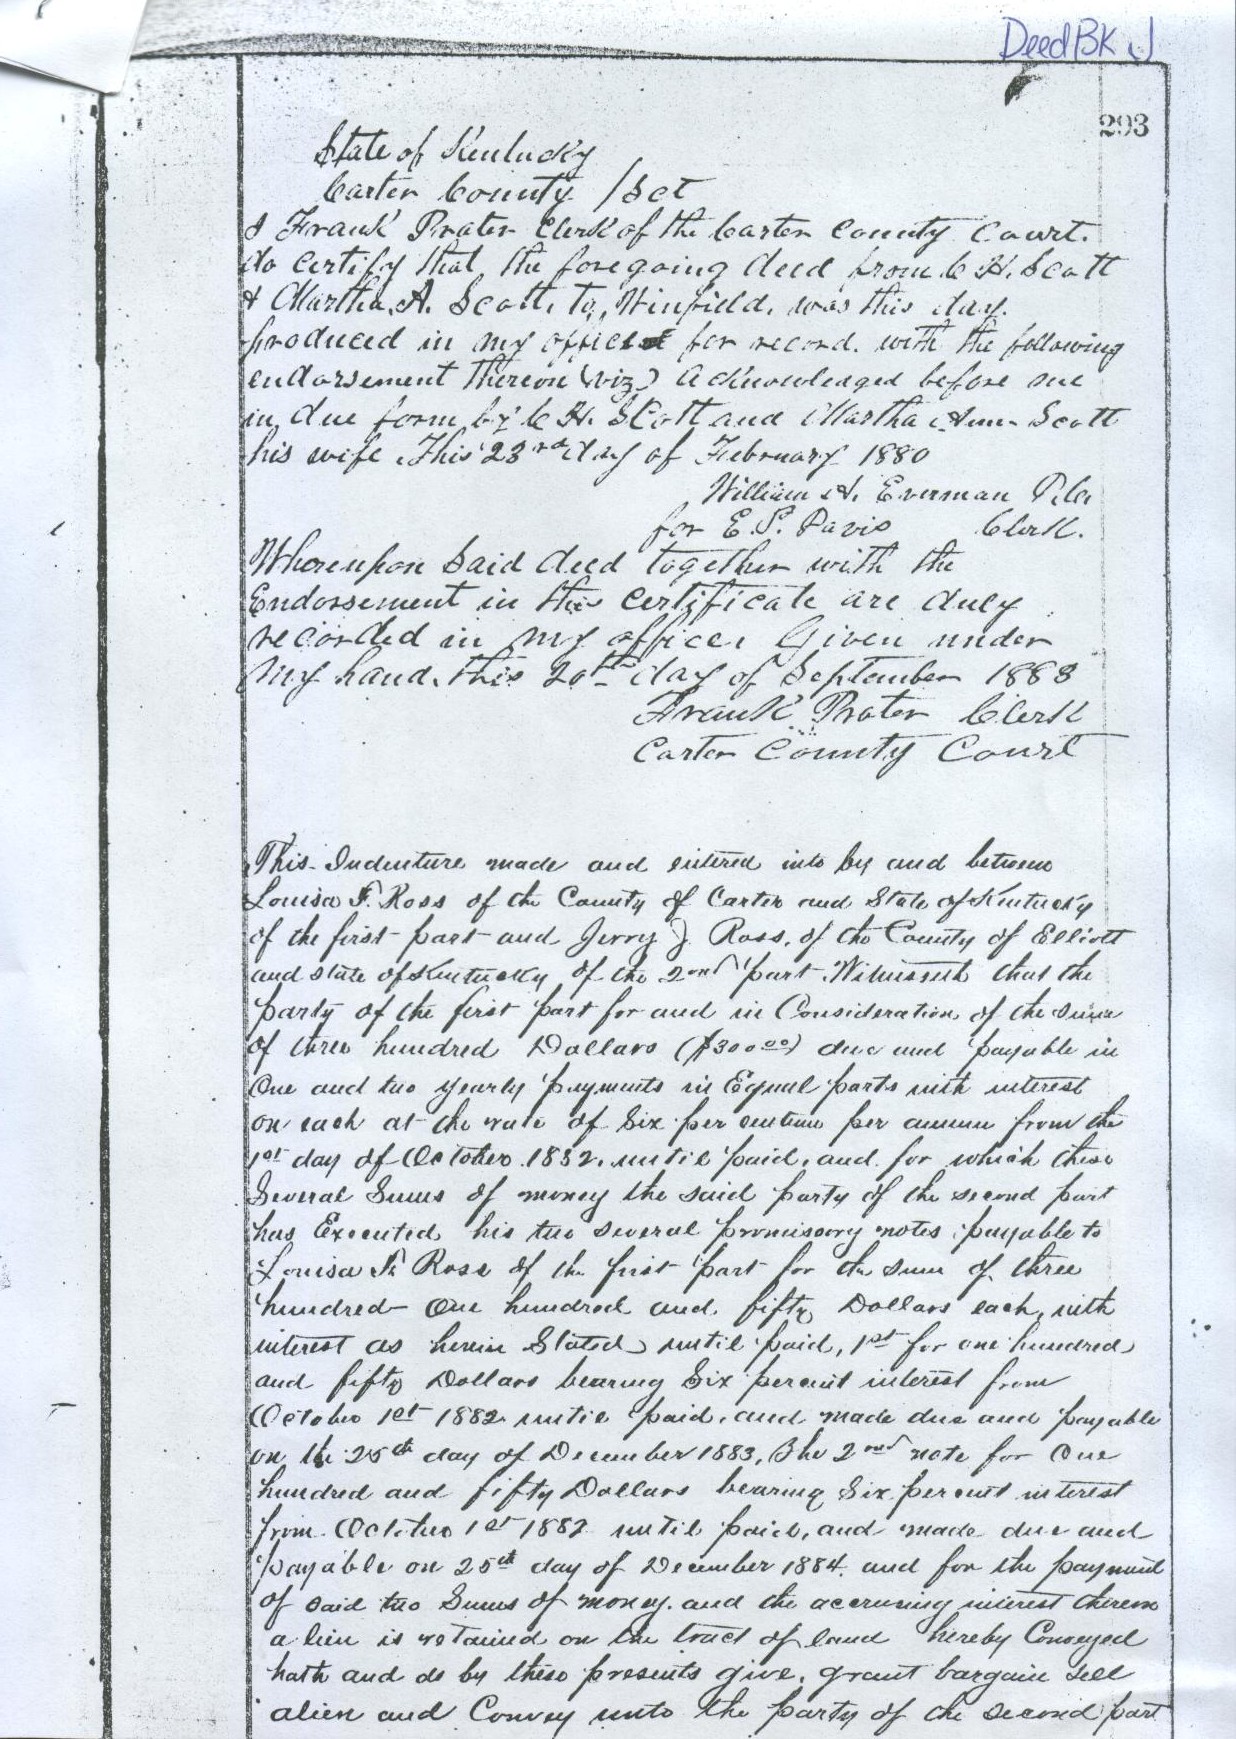 Deed BK J
293
State of Kentucky
Carter County / Sct
I Frank Prater Clerk of the Carter County Court.
do certify that the foregoing deed from C H. Scott
& Martha. A. Scott, To, Winfield, was this day.
produced in my office for record. with the following
endorsement thereon (viz) Acknowledged before me
in due form by C H. Scott and Martha Ann Scott
his wife. This 23rd day of February 1880
William H. Everman
for E. P. Davis Clerk.
Whereupon Said deed together with the
Endorsement in this certificate are duly
recorded in my office, Given under
My hand, this 20th day of September 1883
Frank Prater Clerk
Carter County Court
This Indenture made and entered into by and between
Louisa F. Ross of the County of Carter and State of Kentucky
of the first part and Jerry J Ross, of the County of Elliott
and State of Kentucky of the 2nd part. Witnesseth that the
party of the first part for and in Consideration of the sum
of three hundred Dollars ($300.00) due and payable in
One and two yearly payments in Equal parts with interest
on each at the rate of Six per centum per annum from the
1st day of October 1882. until paid, and for which these
Several Sums of money the said party of the second part
has Executed his two several promissory notes payable to
Louisa F. Ross of the first part for the sum of three
hundred- One hundred and fifty Dollars each, with
interest as herein Stated until paid, 1st for one hundred
and fifty Dollars bearing Six percent interest from
October 1st 1882 until paid, and made due and payable
on the 25th day of December 1883, The 2nd note for One
hundred and fifty Dollars bearing Six percent interest
from October 1st 1882 until paid, and made due and
payable on 25th day of December 1884. and for the payment
of said two Sums of money. and the accruing interest thereon
a lien is retained on the tract of land hereby Conveyed
hath and do by these presents give, grant bargain sell
alien and Convey unto the party of the second part